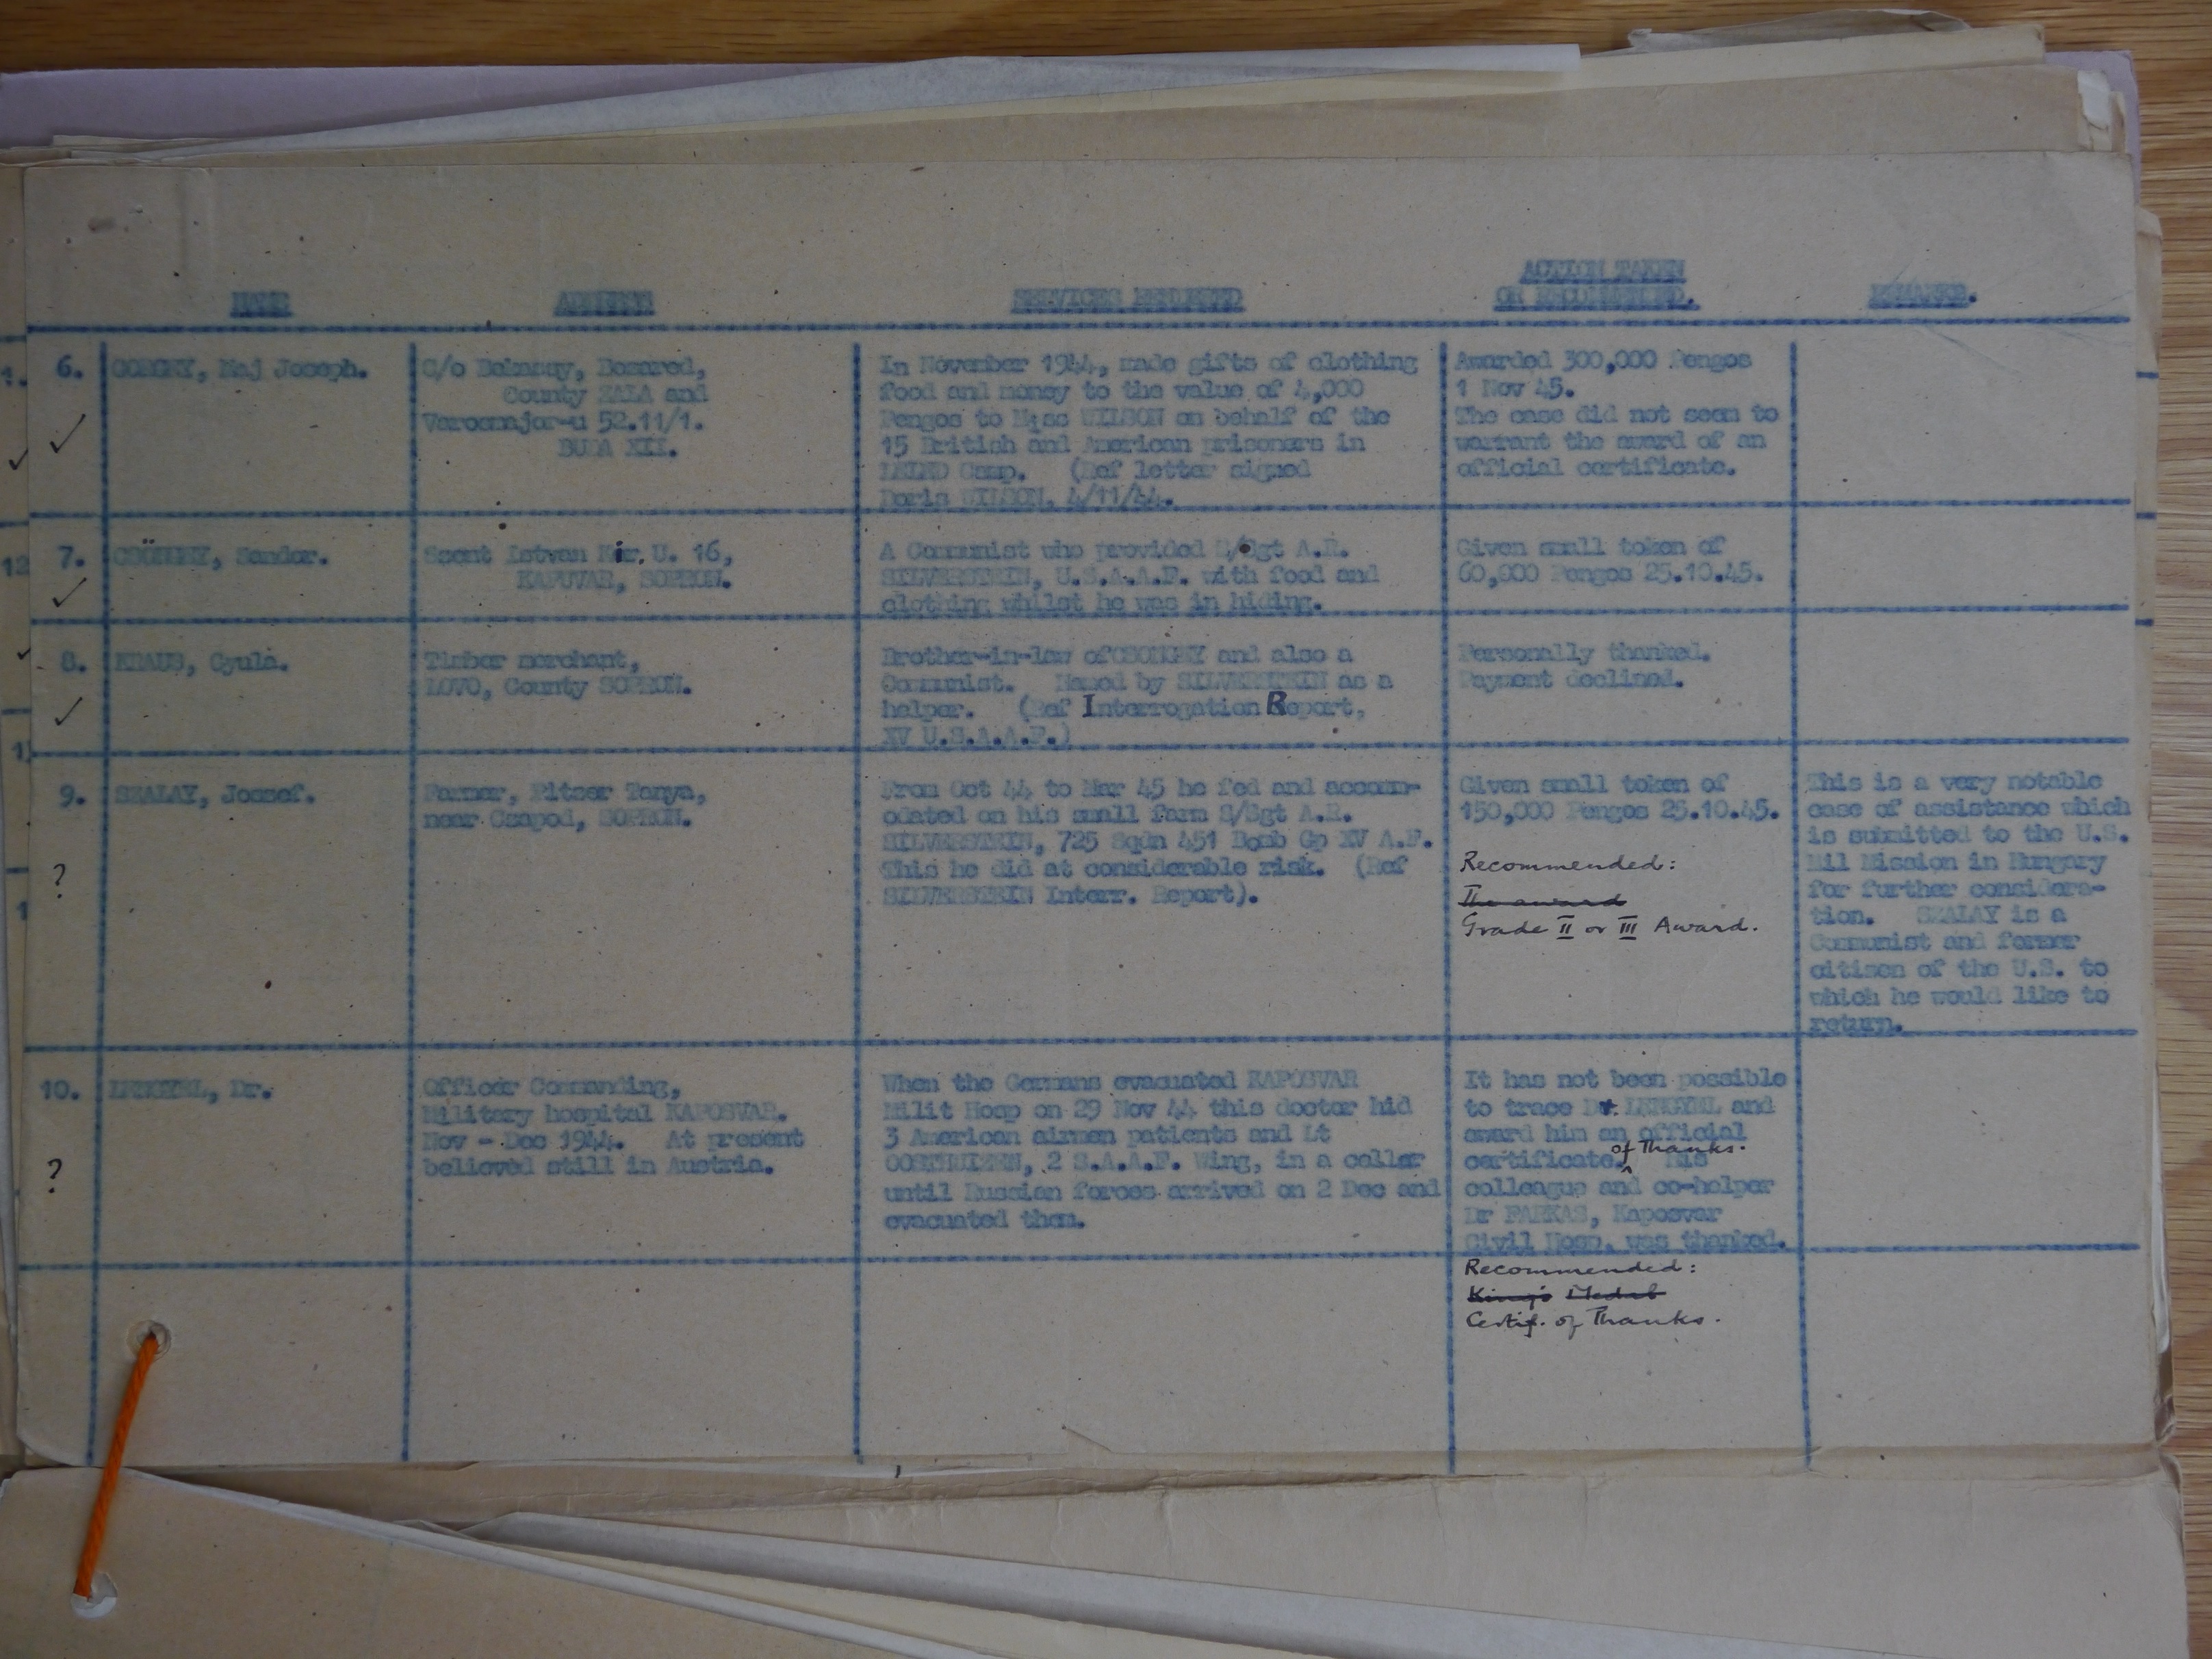 NAME ADDRESS SERVICES RENDERED ACTION TAKEN
OR RECOMMENDED. REMARKS.
6. Maj Joseph.
C/o
County ZALA and
Varosmajor-u 52.11/1.
BUDA XII.
In November 1944, made gifts of clothing
food and money to the value of 4,000
Pengos to Miss WILSON on behalf of the
15 British and American prisoners in
Camp. (Ref letter signed
Doris WILSON, 4/11/44.
Awarded 300,000 Pengos
1 Nov 45.
The case did not seem to
warrant the award of an
official certificate.
7. CSÖNGEY, Sandor.
Szent Istvan Kir. U. 16,
KAPUVAR, SOPRON.
A Communist who provided S/Sgt A.R.
SILVERSTEIN, U.S.A.A.F. with food and
clothing whilst he was in hiding.
Given small token of
60,000 Pengos 25.10.45.
8. KRAUS, Gyula.
Timber merchant,
LOVO, County SOPRON.
Brother-in-law of CSONGEY and also a
Communist. Named by SILVERSTEIN as a
helper. (Ref Interrogation Report,
XV U.S.A.A.F.)
Personally thanked.
Payment declined.
9. SZALAY, Jozsef.
?
Farmer, Pitzer Tanya,
near Csapod, SOPRON.
From Oct 44 to Mar 45 he fed and accomm-
odated on his small farm S/Sgt A.R.
SILVERSTEIN, 725 Sqdn 451 Bomb Gp XV A.F.
This he did at considerable risk. (Ref
SILVERSTEIN Interr. Report).
Given small token of
150,000 Pengos 25.10.45.
Recommended:
The award
Grade II or III Award.
This is a very notable
case of assistance which
is submitted to the U.S.
Mil Mission in Hungary
for further considera-
tion. SZALAY is a
Communist and former
citizen of the U.S. to
which he would like to
return.
10. LENGYEL, Dr.
?
Officer Commanding,
Military hospital KAPOSVAR.
Nov - Dec 1944. At present
believed still in Austria.
When the Germans evacuated KAPOSVAR
Milit Hosp on 29 Nov 44 this doctor hid
3 American airmen patients and Lt
OOSTHUIZEN, 2 S.A.A.F. Wing, in a cellar
until Russian forces arrived on 2 Dec and
evacuated them.
It has not been possible
to trace Dr. LENGYEL and
award him an official
certificate of Thanks. His
colleague and co-helper
Dr FARKAS, Kaposvar
Civil Hosp. was thanked.
Recommended:
King's Medal
Certif. of Thanks.